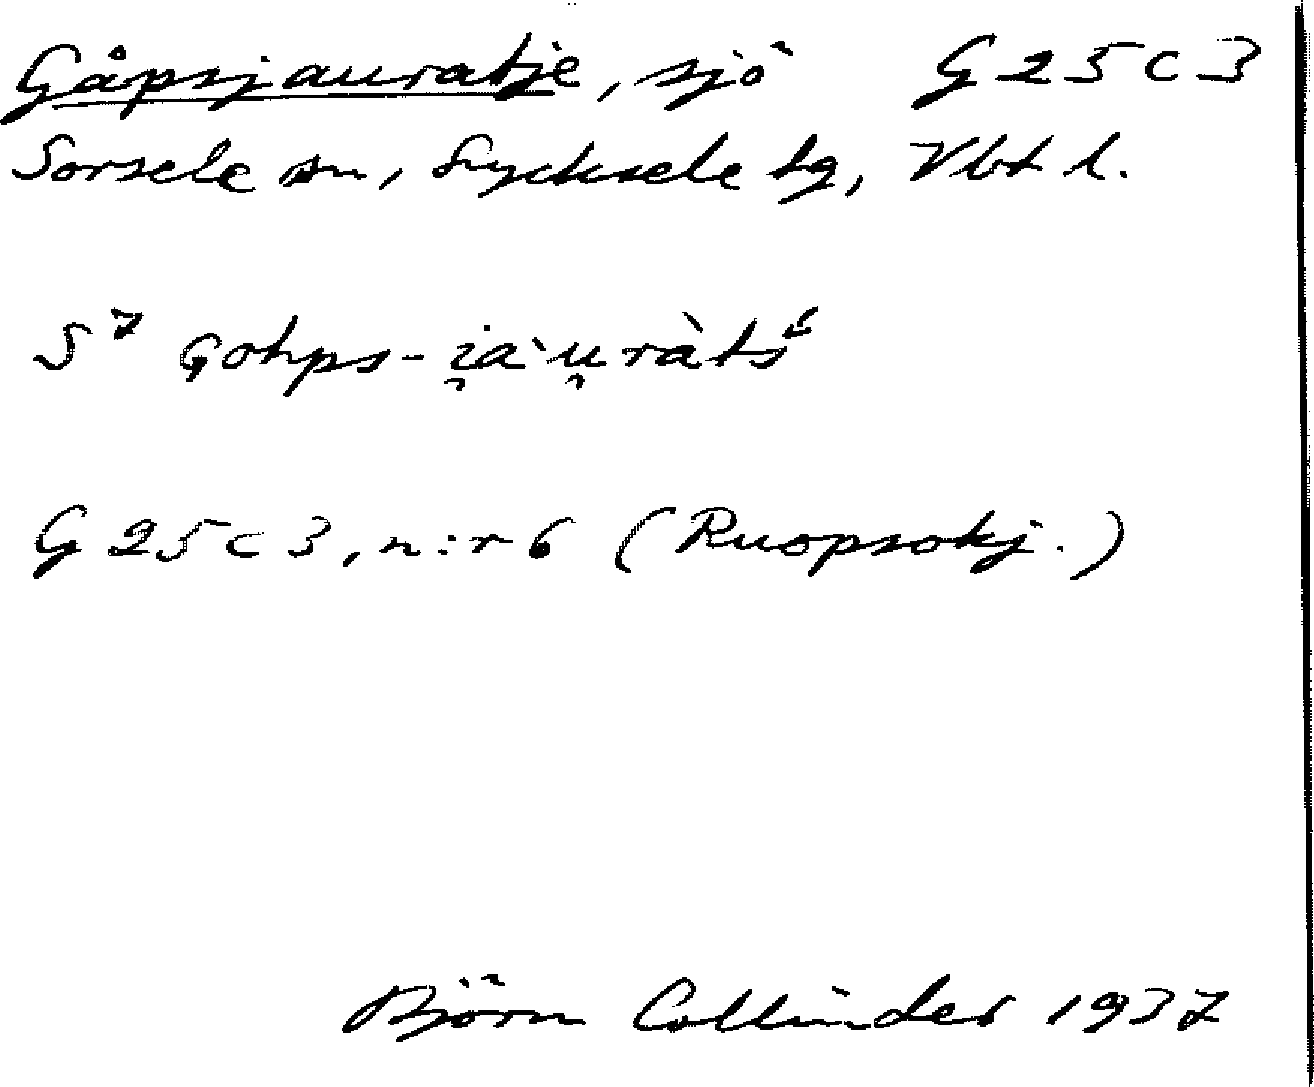 Gåpsjauratje, sjö G 25 c 3
Sorsele sn, Lycksele tg, Vbt l.
S⁷ Gohps-i̯a`u̯ràts
G 25 c 3, n:r 6 (Ruopsokj.)
Björn Collinder 1937